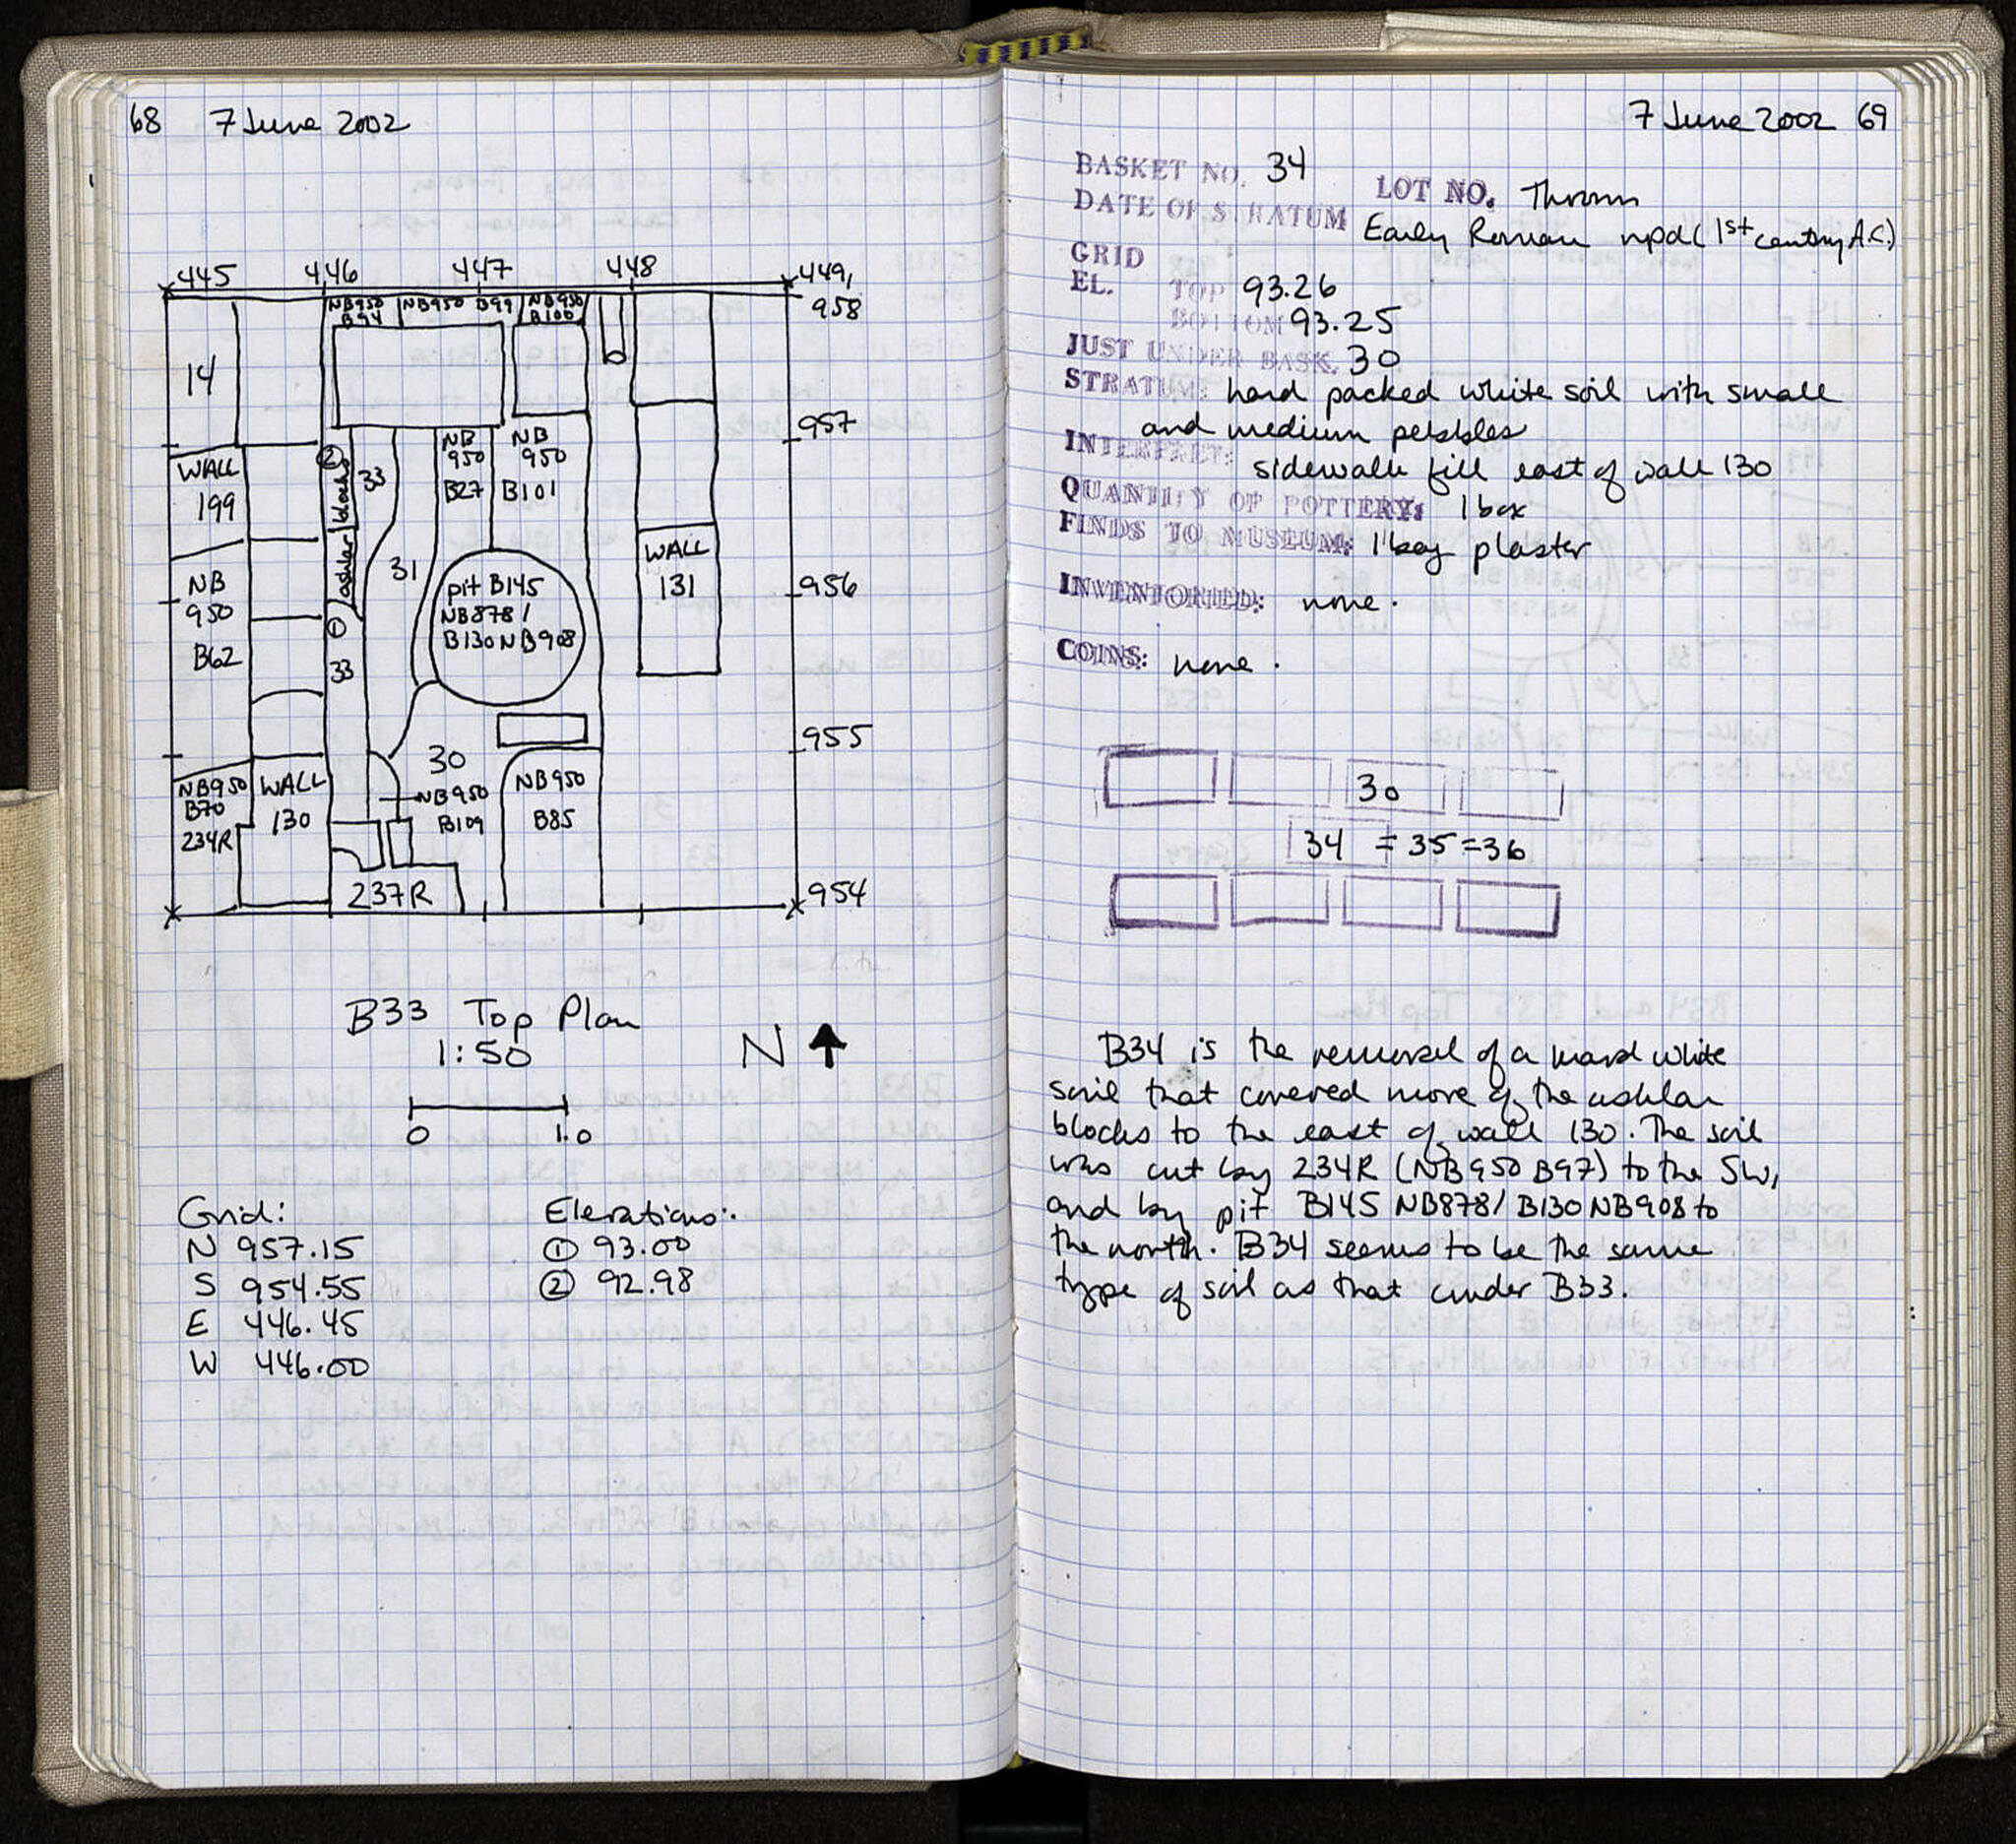 68 7 June 2002
445 446 447 448 449,
958
NB950 B94
NB950 B99
NB950 B100
14
957
WALL 199
② 33
ashlar blocks
NB 950 B27
NB 950 B101
31
WALL 131
956
NB 950 B62
pit B145
NB878/
B130 NB908
①
33
955
30
NB950 B70 234R
WALL 130
NB950 B109
NB950 B85
237R
954
B33 Top Plan
1:50
N
0 1.0
Grid:
N 957.15
S 954.55
E 446.45
W 446.00
Elevations:
① 93.00
② 92.98
7 June 2002 69
BASKET NO. 34
LOT NO. Thrown
DATE OF STRATUM Early Roman npd (1st century A.C.)
GRID
EL. TOP 93.26
BOTTOM 93.25
JUST UNDER BASK. 30
STRATUM: hard packed white soil with small
and medium pebbles
INTERPRET: sidewalk fill east of wall 130
QUANTITY OF POTTERY: 1 box
FINDS TO MUSEUM: 1 bag plaster
INVENTORIED: none.
COINS: none.
30
34 = 35 = 36
B34 is the removal of a hard white
soil that covered more of the ashlar
blocks to the east of wall 130. The soil
was cut by 234R (NB950 B97) to the SW,
and by pit B145 NB878/B130 NB908 to
the north. B34 seems to be the same
type of soil as that under B33.